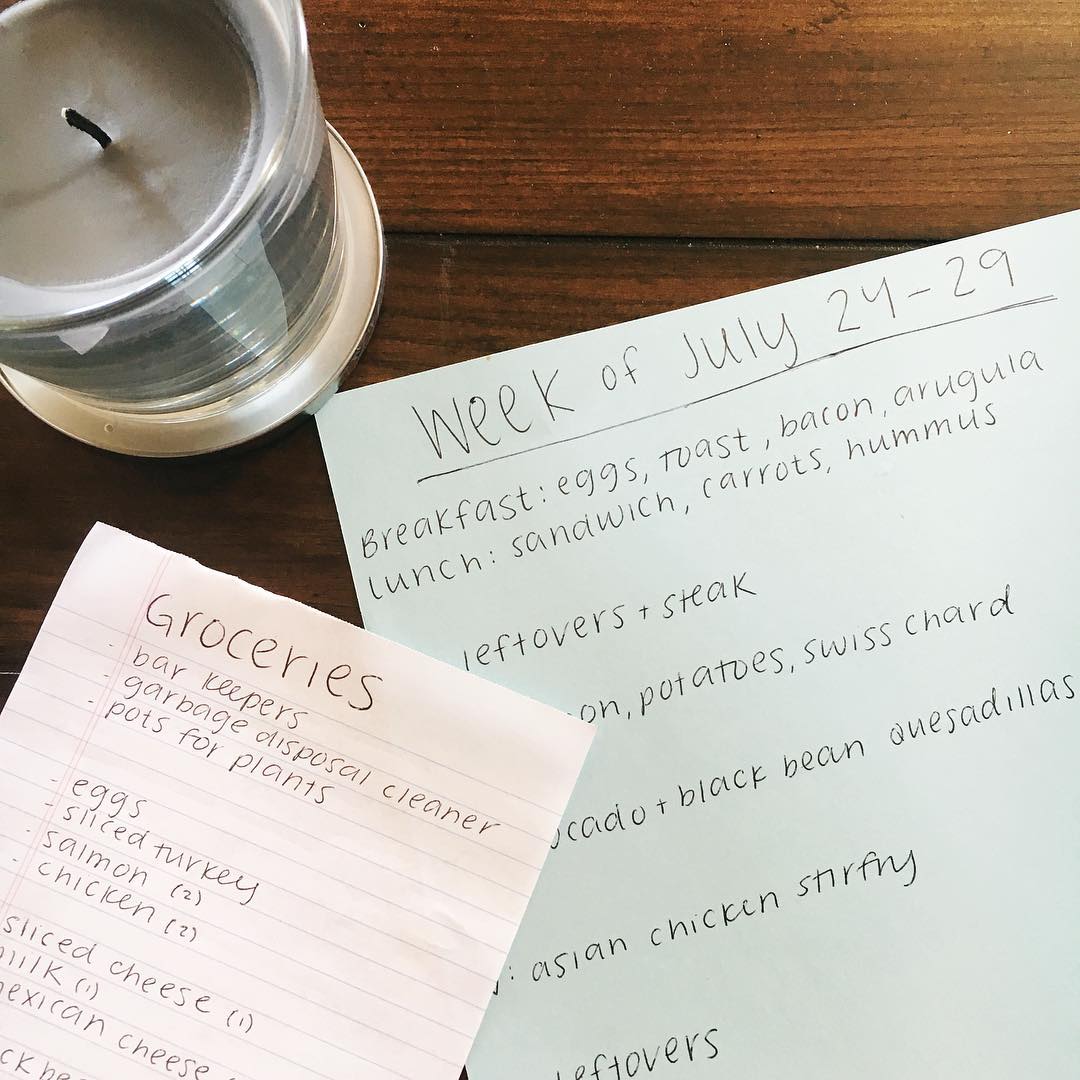 Week of July 24-29
Breakfast: eggs, toast, bacon, arugula
lunch: sandwich, carrots, hummus
leftovers + steak
on, potatoes, swiss chard
cado + black bean quesadillas
: asian chicken stirfry
leftovers
Groceries
- bar keepers
- garbage disposal cleaner
- pots for plants
- eggs
- sliced turkey
- salmon (2)
- chicken (2)
sliced cheese (1)
milk (1)
mexican cheese
ck be